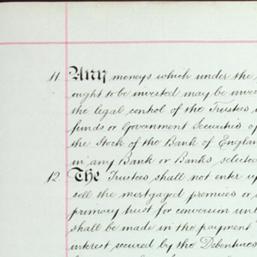 11 Any moneys which under the
ought to be invested may be inves
the legal control of the Trustees
funds or Government Securities of
the Stock of the Bank of England
in any Bank or Banks selected
12. The Trustees shall not enter up
sell the mortgaged premises or
primary trust for conversion unt
shall be made in the payment
interest secured by the Debentures